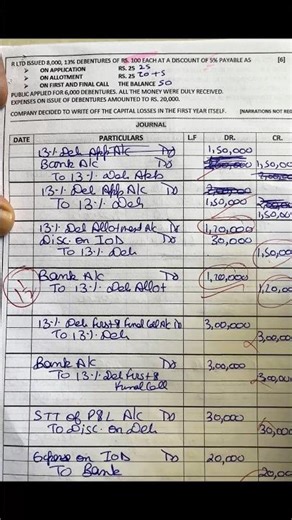 R LTD ISSUED 8,000, 13% DEBENTURES OF RS. 100 EACH AT A DISCOUNT OF 5% PAYABLE AS [6]
➢ ON APPLICATION RS. 25 25
➢ ON ALLOTMENT RS. 25 20+5
➢ ON FIRST AND FINAL CALL THE BALANCE 50
PUBLIC APPLIED FOR 6,000 DEBENTURES. ALL THE MONEY WERE DULY RECEIVED.
EXPENSES ON ISSUE OF DEBENTURES AMOUNTED TO RS. 20,000.
COMPANY DECIDED TO WRITE OFF THE CAPITAL LOSSES IN THE FIRST YEAR ITSELF. [NARRATIONS NOT RE
JOURNAL
DATE PARTICULARS L.F DR. CR.
13% Deb App A/c Dr 1,50,000
Bank A/c Dr 1,50,000
To 13% Deb App
13% Deb App A/c Dr
To 13% Deb 1,50,000 1,50,00
13% Deb Allotment A/c Dr 1,20,000
Disc on IOD Dr 30,000
To 13% Deb 1,50,00
Bank A/c Dr 1,20,000
To 13% Deb Allot 1,20,0
13% Deb First & Final Call A/c Dr 3,00,000
To 13% Deb 3,00,00
Bank A/c Dr 3,00,000
To 13% Deb First & 3,00,00
Final Call
STT of P&L A/c Dr 30,000
To Disc. on Deb 30,00
Expense on IOD Dr 20,000
To Bank 20,00